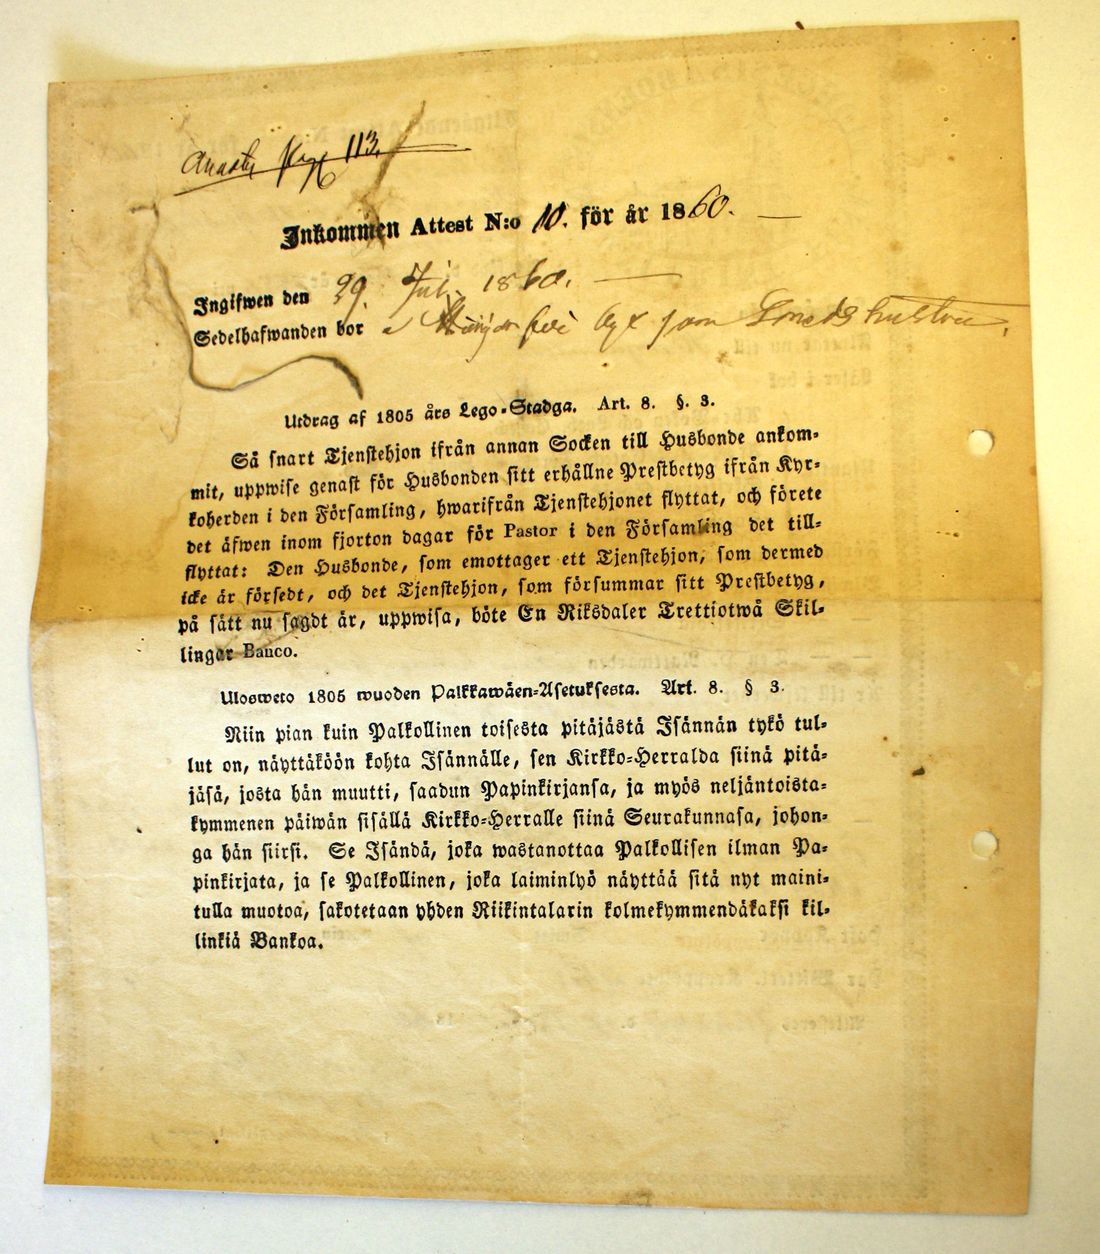 113.
Inkommen Attest N:o 10. för år 1860.
Ingifwen den 29. Juli 1860.
Sedelhafwanden bor
Utdrag af 1805 års Lego-Stadga. Art. 8. §. 3.
Så snart Tjenstehjon ifrån annan Socken till Husbonde ankom-
mit, uppwise genast för Husbonden sitt erhållne Prestbetyg ifrån Kyr-
koherden i den Församling, hwarifrån Tjenstehjonet flyttat, och förete
det äfwen inom fjorton dagar för Pastor i den Församling det till-
flyttat: Den Husbonde, som emottager ett Tjenstehjon, som dermed
icke är försedt, och det Tjenstehjon, som försummar sitt Prestbetyg,
på sätt nu sagdt är, uppwisa, böte En Riksdaler Trettiotwå Skil-
lingar Banco.
Ulosweto 1805 wuoden Palkkawäen-Asetuksesta. Art. 8. § 3.
Niin pian kuin Palkollinen toisesta pitäjästä Isännän tykö tul-
lut on, näyttäköön kohta Isännälle, sen Kirkko-Herralda siinä pitä-
jäsä, josta hän muutti, saadun Papinkirjansa, ja myös neljäntoista-
kymmenen päiwän sisällä Kirkko-Herralle siinä Seurakunnasa, johon-
ga hän siirsi. Se Isändä, joka wastanottaa Palkollisen ilman Pa-
pinkirjata, ja se Palkollinen, joka laiminlyö näyttää sitä nyt maini-
tulla muotoa, sakotetaan yhden Riikintalarin kolmekymmendäkaksi kil-
linkiä Bankoa.